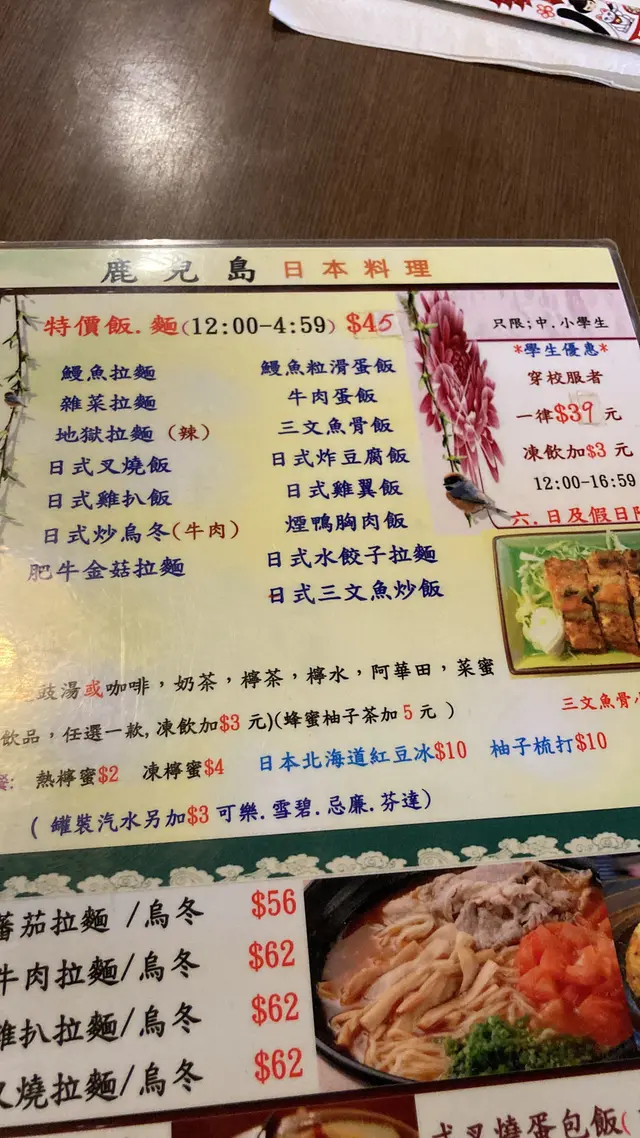 鹿兒島 日本料理
特價飯.麵(12:00-4:59) $45
鰻魚拉麵
雜菜拉麵
地獄拉麵（辣）
日式叉燒飯
日式雞扒飯
日式炒烏冬(牛肉)
肥牛金菇拉麵
鰻魚粒滑蛋飯
牛肉蛋飯
三文魚骨飯
日式炸豆腐飯
日式雞翼飯
煙鴨胸肉飯
日式水餃子拉麵
日式三文魚炒飯
只限;中.小學生
*學生優惠*
穿校服者
一律$39 元
凍飲加$3 元
12:00-16:59
六.日及假日
三文魚骨
豉湯或咖啡，奶茶，檸茶，檸水，阿華田，菜蜜
飲品，任選一款,凍飲加$3 元)(蜂蜜柚子茶加 5 元 )
熱檸蜜$2 凍檸蜜$4 日本北海道紅豆冰$10 柚子梳打$10
( 罐裝汽水另加$3 可樂.雪碧.忌廉.芬達)
蕃茄拉麵 /烏冬 $56
牛肉拉麵/烏冬 $62
雞扒拉麵/烏冬 $62
叉燒拉麵/烏冬 $62
式叉燒蛋包飯(